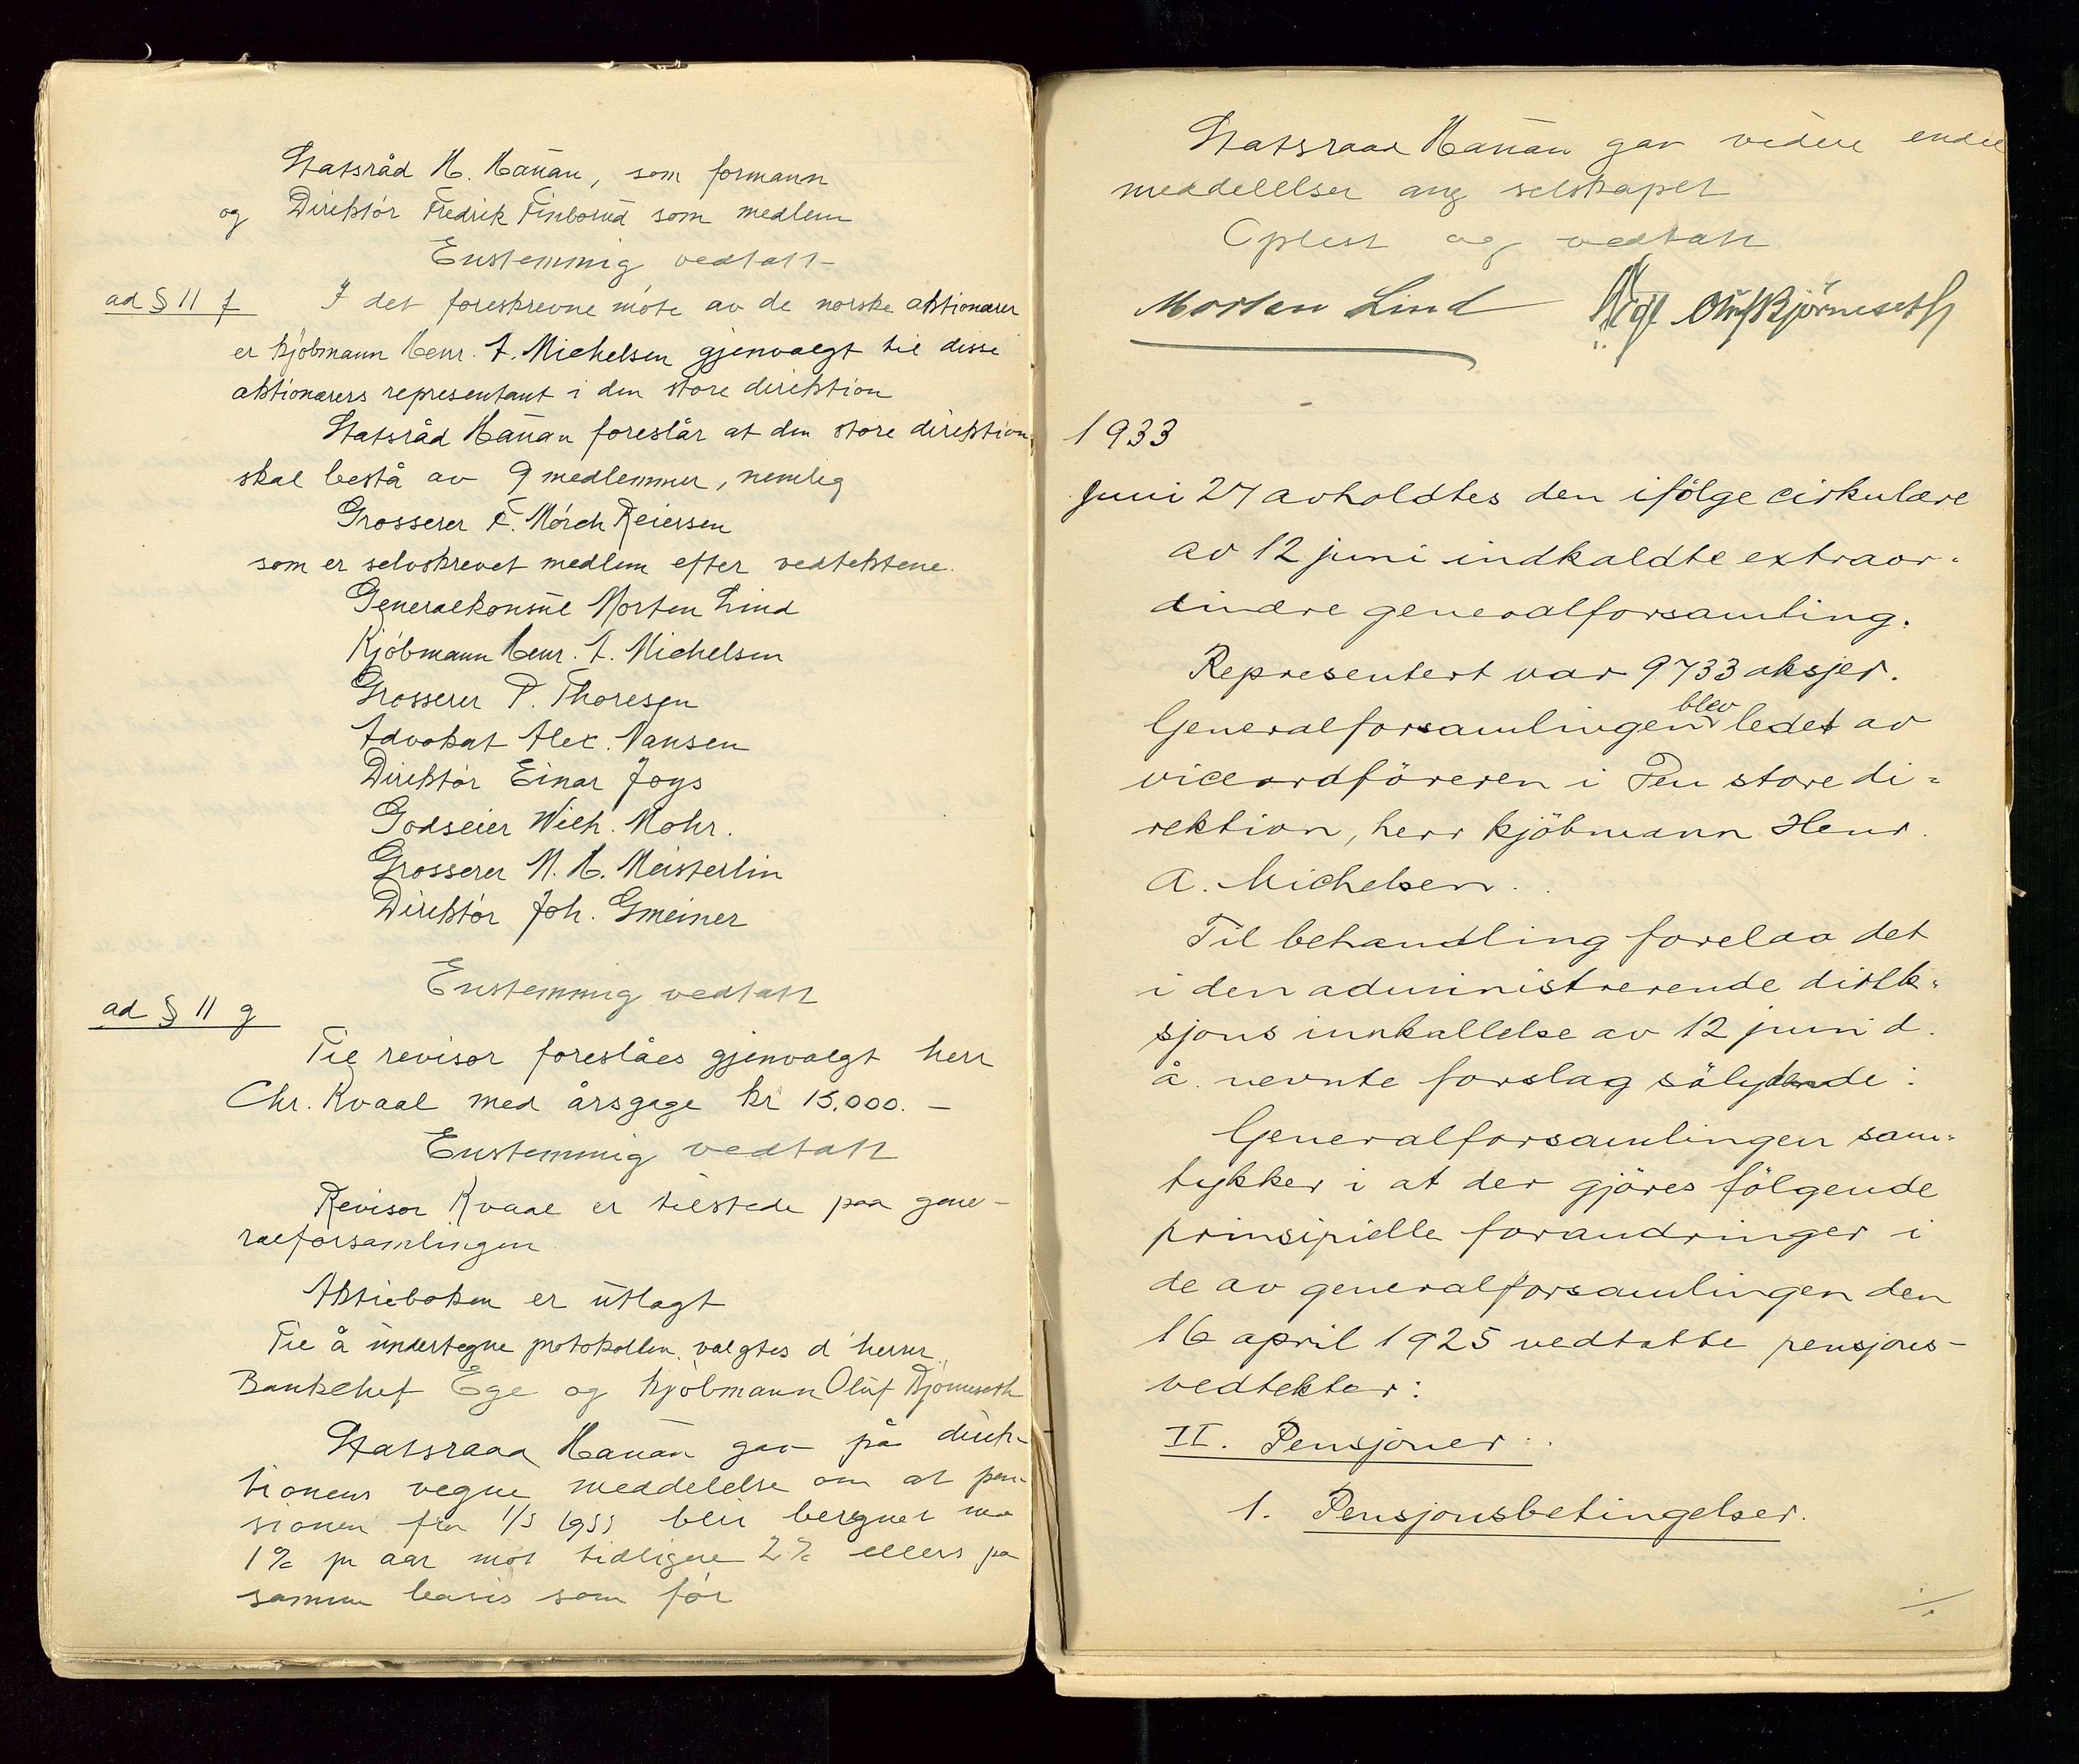 Statsråd H. Hauan, som formann
og Direktör Fredrik Finborud som medlem
Enstemmig vedtatt
ad § 11 f
I det foreskrevne möte av de norske aktionærer
er kjöbmann Henr. A. Michelsen gjenvalgt til disse
aktionærers representant i den store direktion
Statsråd Hauan foreslår at den store direktion
skal bestå av 9 medlemmer, nemlig
Grosserer F. Mörch Reiersen
som er selvskrevet medlem efter vedtektene.
Generalkonsul Morten Lind
Kjöbmann Henr. A. Michelsen
Grosserer P. Thoresen
Advokat Alex. Nansen
Direktör Einar Joys
Godseier Wilh. Mohr.
Grosserer N. H. Meisterlin
Direktör Joh. Gmeiner
Enstemmig vedtatt
ad § 11 g
Til revisor foreslåes gjenvalgt herr
Chr. Kvaal med årsgage kr 15.000. –
Enstemmig vedtatt
Revisor Kvaal er tilstede paa gene-
ralforsamlingen
Aktieboken er utlagt
Til å undertegne protokollen valgtes d' herrer
Bankchef Ege og kjöbmann Oluf Bjørneseth
Statsraad Hauan gav på direk-
tionens vegne meddelelse om at pen-
sionen fra 1/5 1933 blir beregnet
1% pr aar mot tidligere 2% ellers pa
samme basis som för
Statsraad Hauan gav videre endel
meddelelser ang selskapet
Oplest og vedtatt
Morten Lind Oluf Bjørneseth
1933
Juni 27 avholdtes den ifölge cirkulære
av 12 juni indkaldte extraor-
dinære generalforsamling.
Representert var 9733 aksjer.
Generalforsamlingen blev ledet av
viceordföreren i Den store di=
rektion, herr kjöbmann Henr.
A. Michelsen.
Til behandling forelaa det
i den administrerende direk-
sjons innkallelse av 12 juni d.
å. nevnte forslag sålydende:
Generalforsamlingen sam-
tykker i at der gjöres fölgende
prinsipielle forandringer i
de av generalforsamlingen den
16 april 1925 vedtatte pensjons-
vedtekter:
II. Pensjoner.
1. Pensjonsbetingelser.
./.